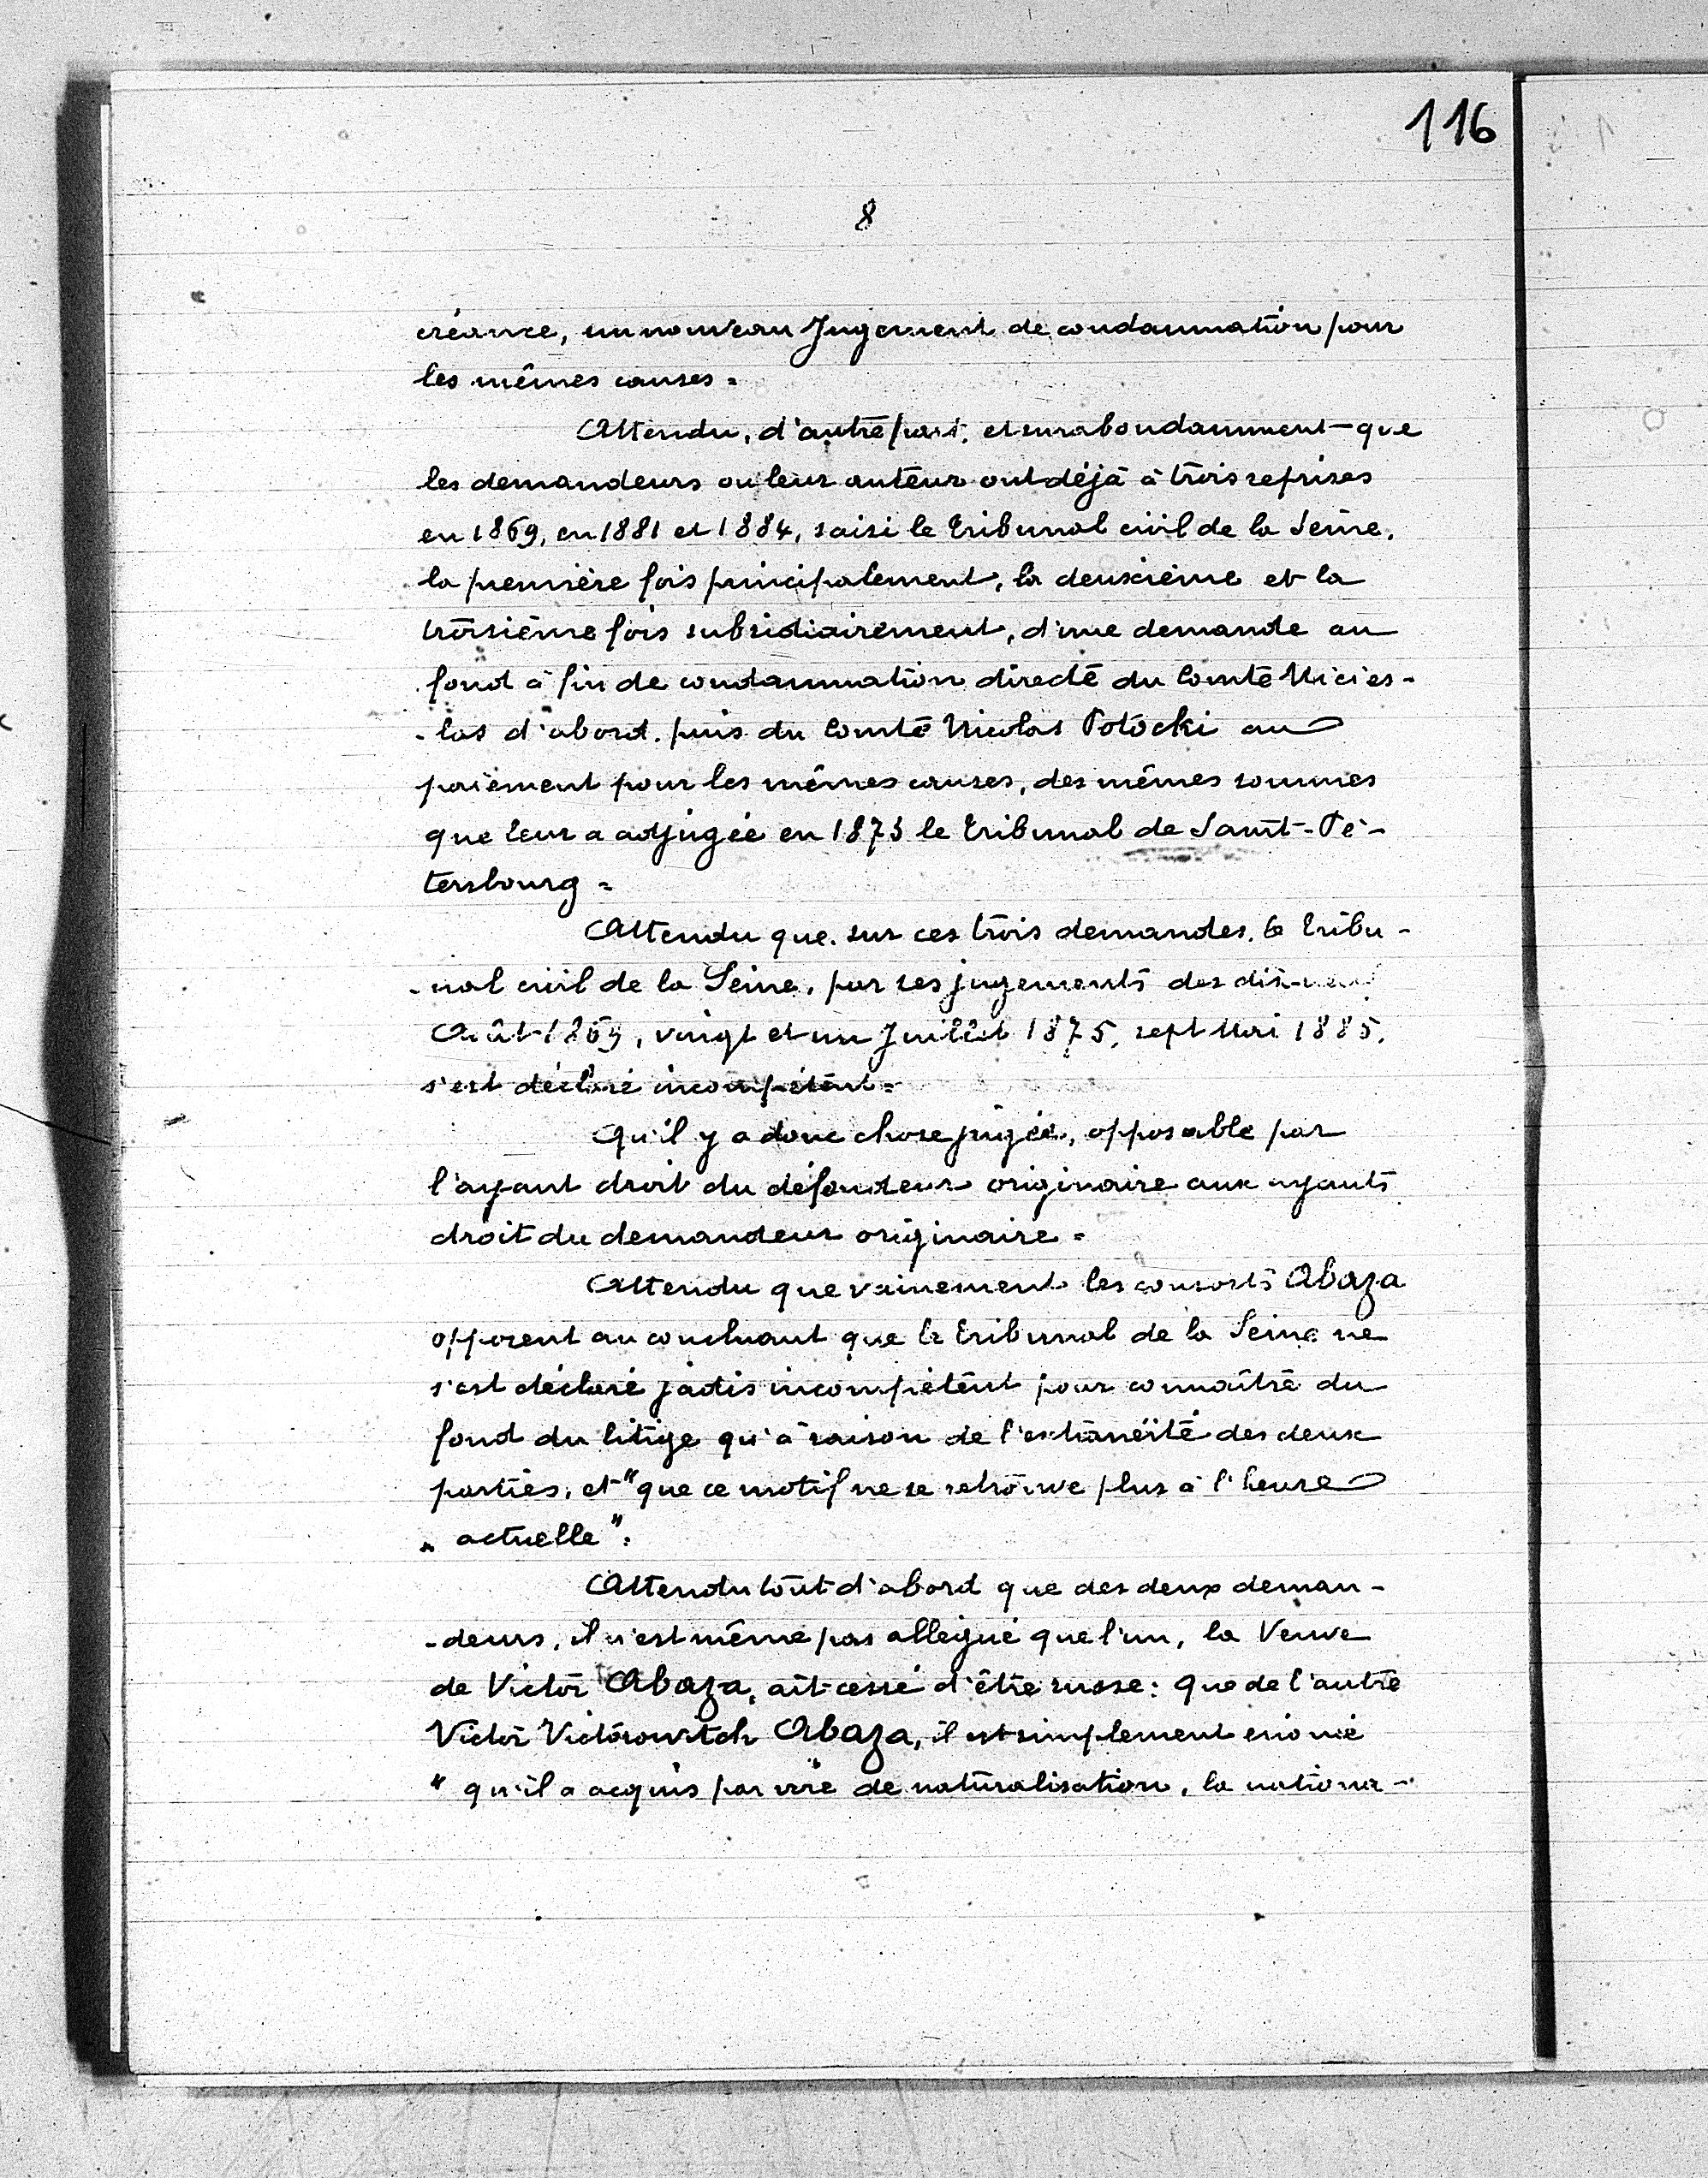 116
8
créance, un nouveau Jugement de condamnation pour
les mêmes causes =
Attendu, d'autre part, et surabondamment que
les demandeurs ou leur auteur ont déjà à trois reprises
en 1869, en 1881 et 1884, saisi le Tribunal civil de la Seine,
la première fois principalement, la deuxième et la
troisième fois subsidiairement, d'une demande au
fond à fin de condamnation directe du Comte Micies-
-las d'abord, puis du Comte Nicolas Potocki au
paiement pour les mêmes causes, des mêmes sommes
que leur a adjugée en 1873 le Tribunal de Saint-Pé-
tersbourg =
Attendu que, sur ces trois demandes, le Tribu-
-nal civil de la Seine, par ses jugements des dix-neuf
Août 1869, vingt et un Juillet 1875, sept Mai 1885,
s'est déclaré incompétent =
Qu'il y a donc chose jugée, opposable par
l'ayant droit du défendeur originaire aux ayants
droit du demandeur originaire =
Attendu que vainement les consorts Abaza
opposent au concluant que le Tribunal de la Seine ne
s'est déclaré jadis incompétent pour connaître du
fond du litige qu'à raison de l'extranéité des deux
parties, et "que ce motif ne se retrouve plus à l'heure
" actuelle":
Attendu tout d'abord que des deux deman-
-deurs, il n'est même pas allégué que l'un, la Veuve
de Victor Abaza, ait cessé d'être russe: Que de l'autre
Victor Victorowitch Abaza, il est simplement énoncé
" qu'il a acquis par voie de naturalisation, la nationa-